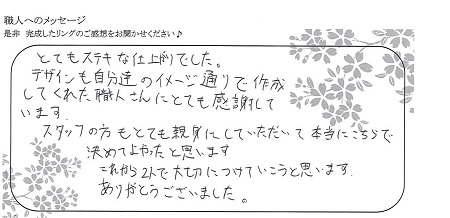 職人へのメッセージ
是非 完成したリングのご感想をお聞かせください♪
とてもステキな仕上がりでした。
デザインも自分達のイメージ通りで作成
してくれた職人さんにとても感謝して
います.
スタッフの方もとても親身にしていただいて本当にこちらで
決めてよかったと思います
これから2人で大切につけていこうと思います.
ありがとうございました。